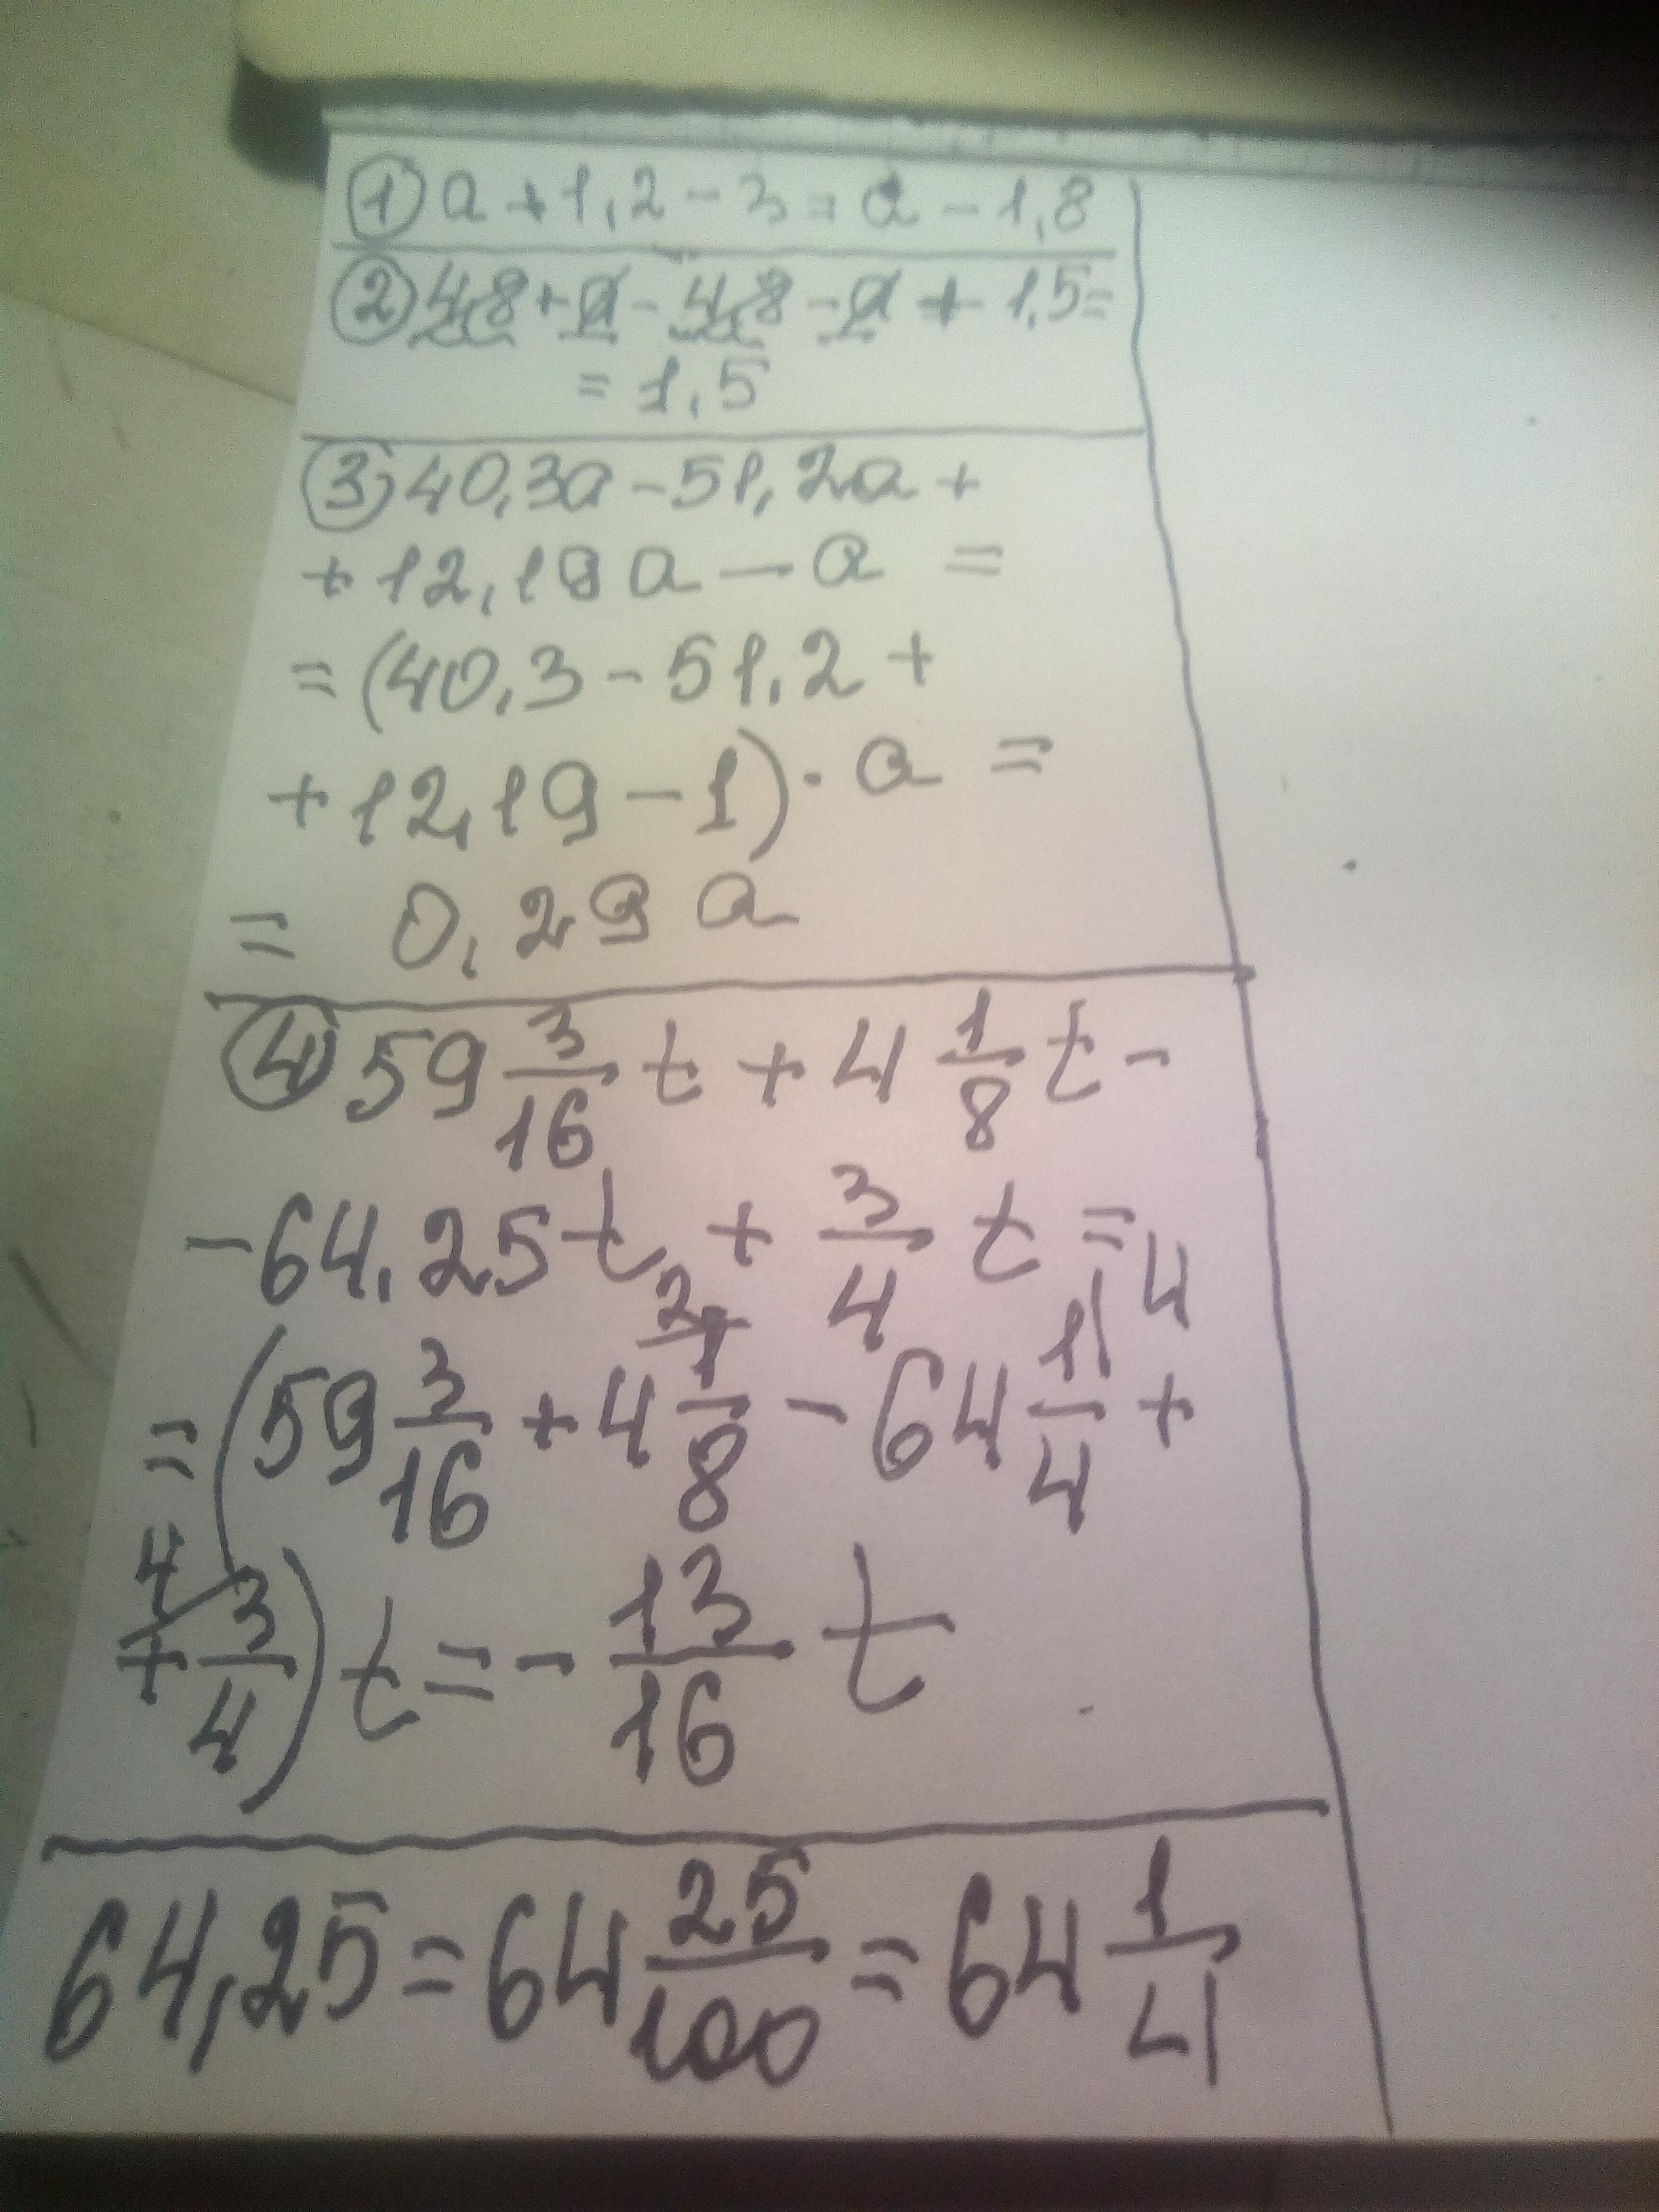 ① a + 1,2 - 3 = a - 1,8
② 4,8 + a - 4,8 - a + 1,5 =
= 1,5
③ 40,3a - 51,2a +
+ 12,19a - a =
= (40,3 - 51,2 +
+ 12,19 - 1) · a =
= 0,29a
④ 59 3/16 t + 4 1/8 t -
- 64,25t + 3/4 t =
= (59 3/16 + 4 1/8 (2 - 64 1/4 (4 +
+ 3/4 (4) t = - 13/16 t
64,25 = 64 25/100 = 64 1/4